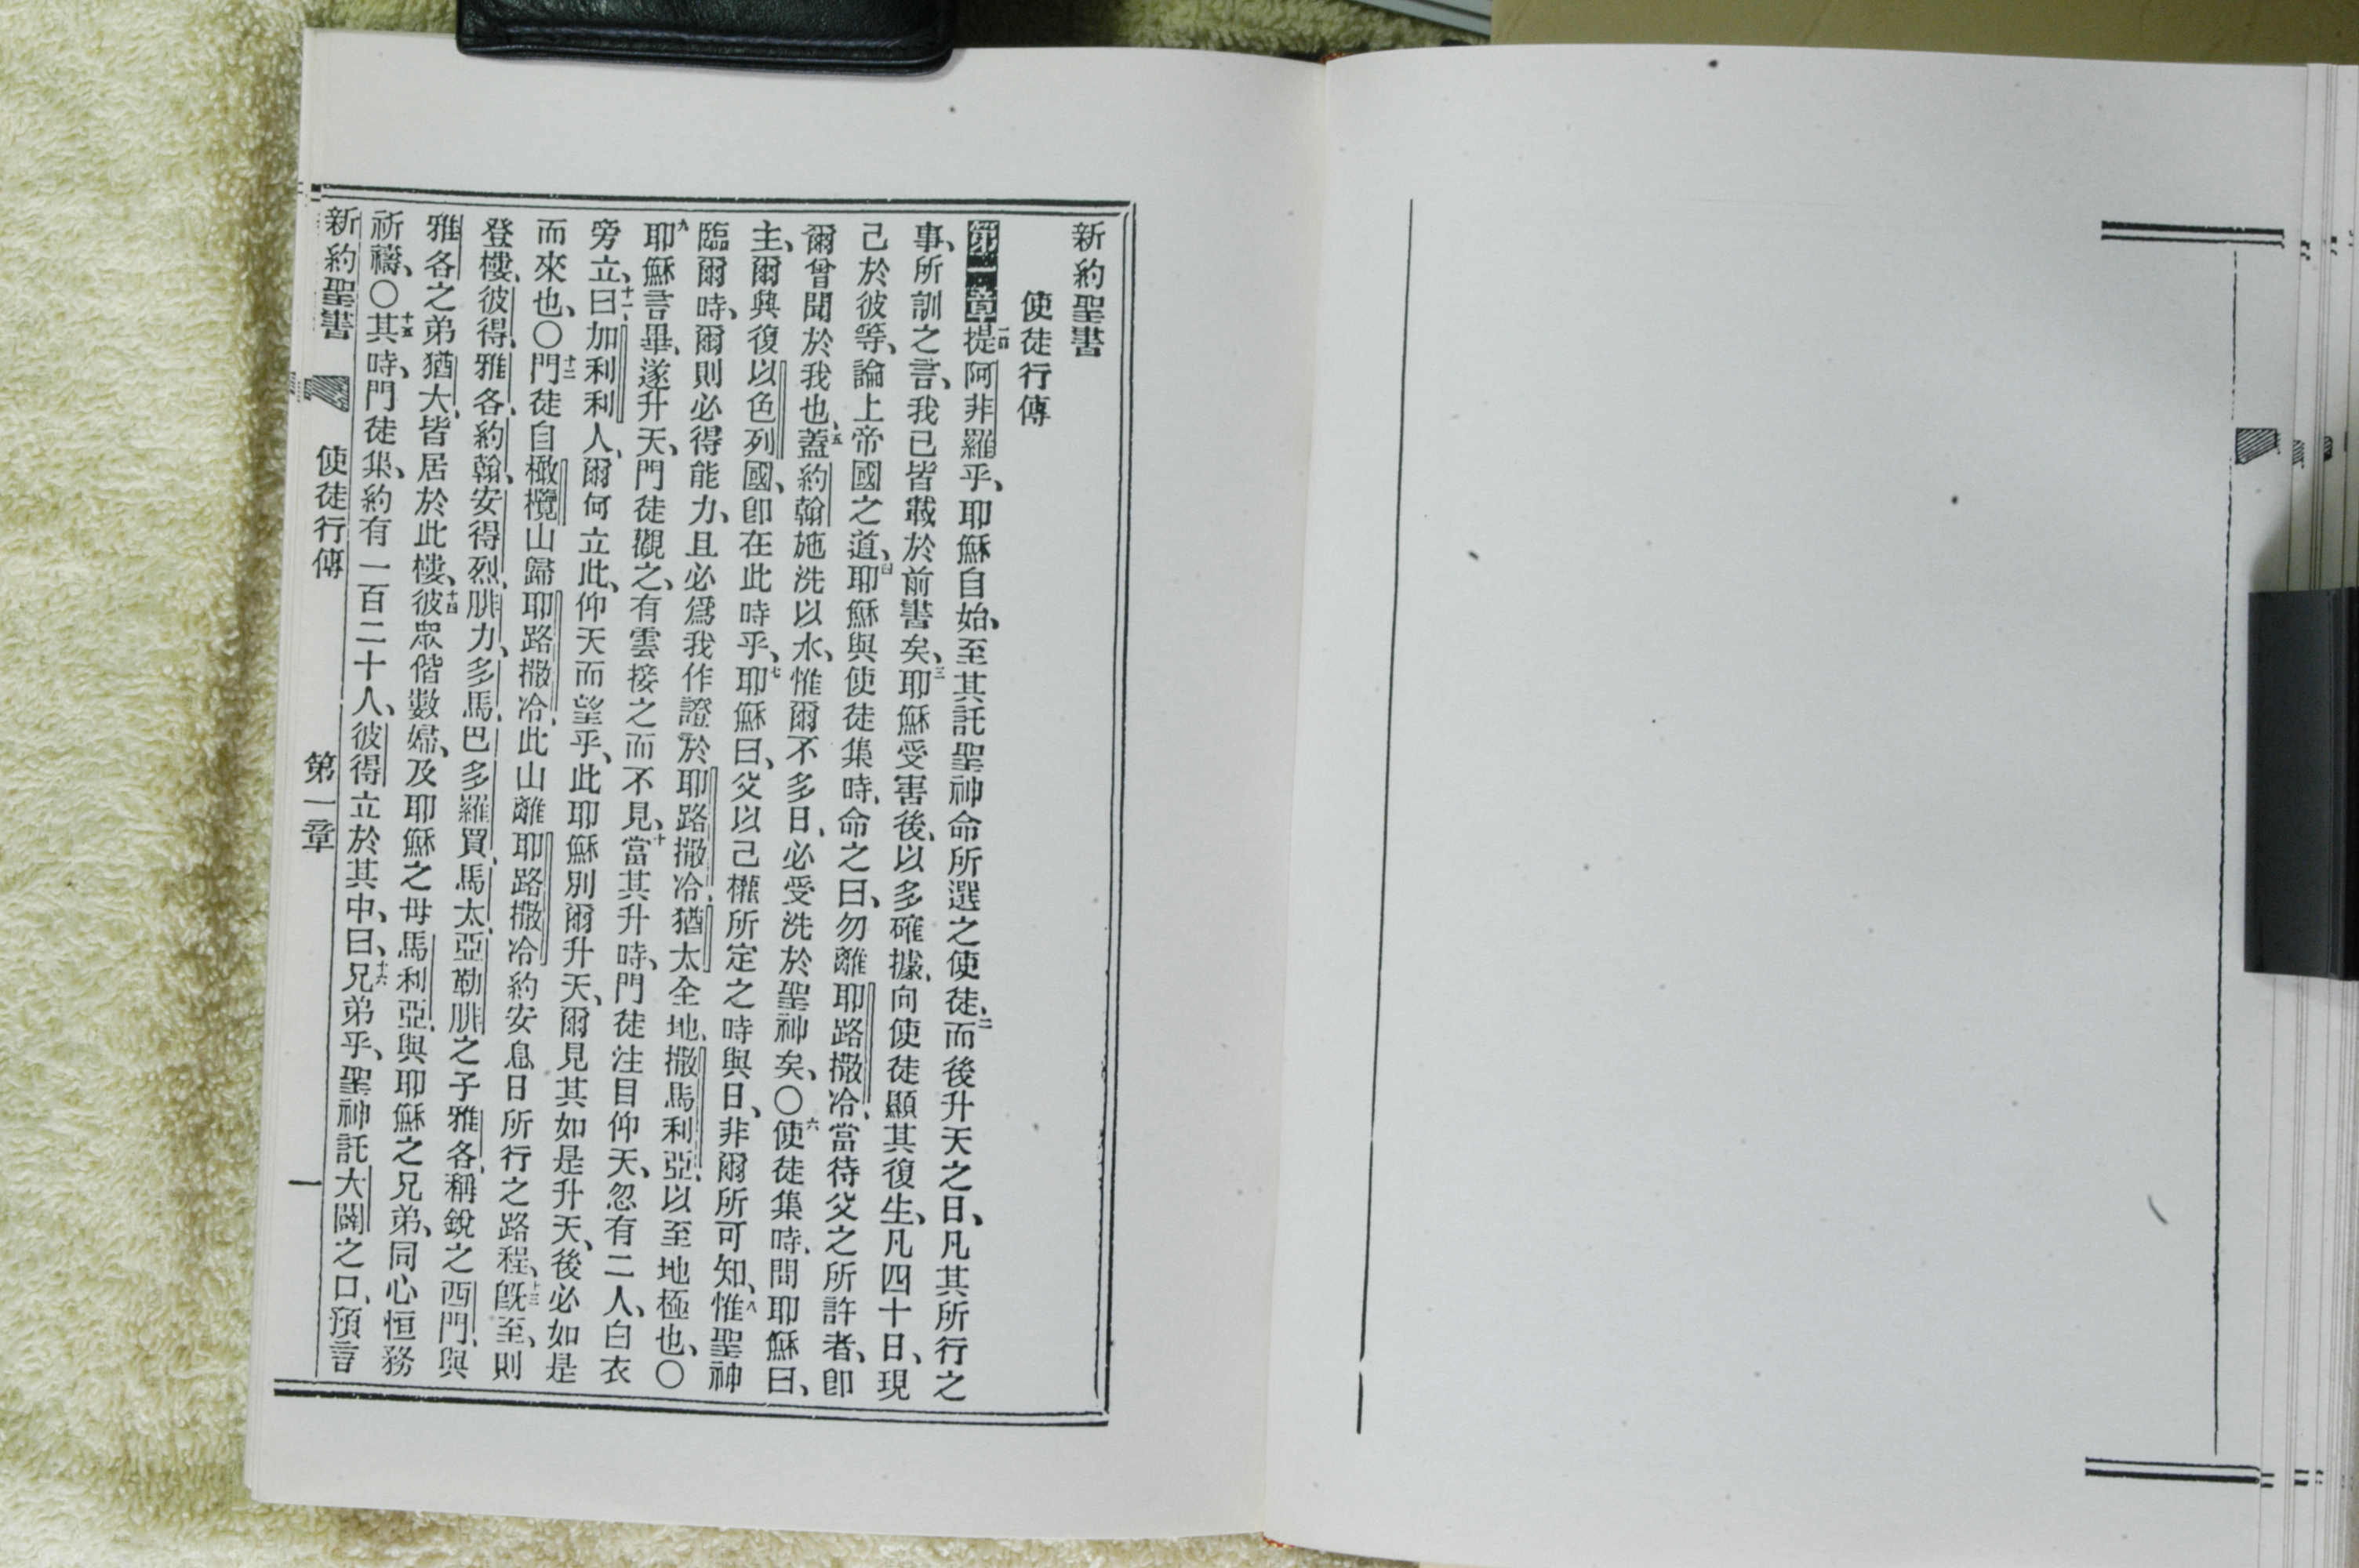 新約聖書
使徒行傳
第一章提阿非羅乎、耶穌自始、至其託聖神命所選之使徒、二而後升天之日、凡其所行之
事、所訓之言、我已皆載於前書矣、三耶穌受害後、以多確據、向使徒顯其復生、凡四十日、現
己於彼等、論上帝國之道、四耶穌與使徒集時、命之曰、勿離耶路撒冷、當待父之所許者、卽
爾曾聞於我也、五蓋約翰施洗以水、惟爾不多日、必受洗於聖神矣、〇六使徒集時、問耶穌曰、
主、爾興復以色列國、卽在此時乎、七耶穌曰、父以己權所定之時與日、非爾所可知、八惟聖神
臨爾時、爾則必得能力、且必爲我作證於耶路撒冷、猶太全地、撒馬利亞、以至地極也、〇
九耶穌言畢、遂升天、門徒觀之、有雲接之而不見、十當其升時、門徒注目仰天、忽有二人、白衣
旁立、十一曰、加利利人、爾何立此、仰天而望乎、此耶穌別爾升天、爾見其如是升天、後必如是
而來也、〇十二門徒自橄欖山歸耶路撒冷、此山離耶路撒冷約安息日所行之路程、十三旣至、則
登樓、彼得、雅各、約翰、安得烈、腓力、多馬、巴多羅買、馬太、亞勒腓之子雅各、稱銳之西門、與
雅各之弟猶大、皆居於此樓、十四彼眾偕數婦、及耶穌之母馬利亞、與耶穌之兄弟、同心恒務
祈禱、〇十五其時、門徒集、約有一百二十人、彼得立於其中、曰、十六兄弟乎、聖神託大闢之口、預言
新約聖書 使徒行傳 第一章 一